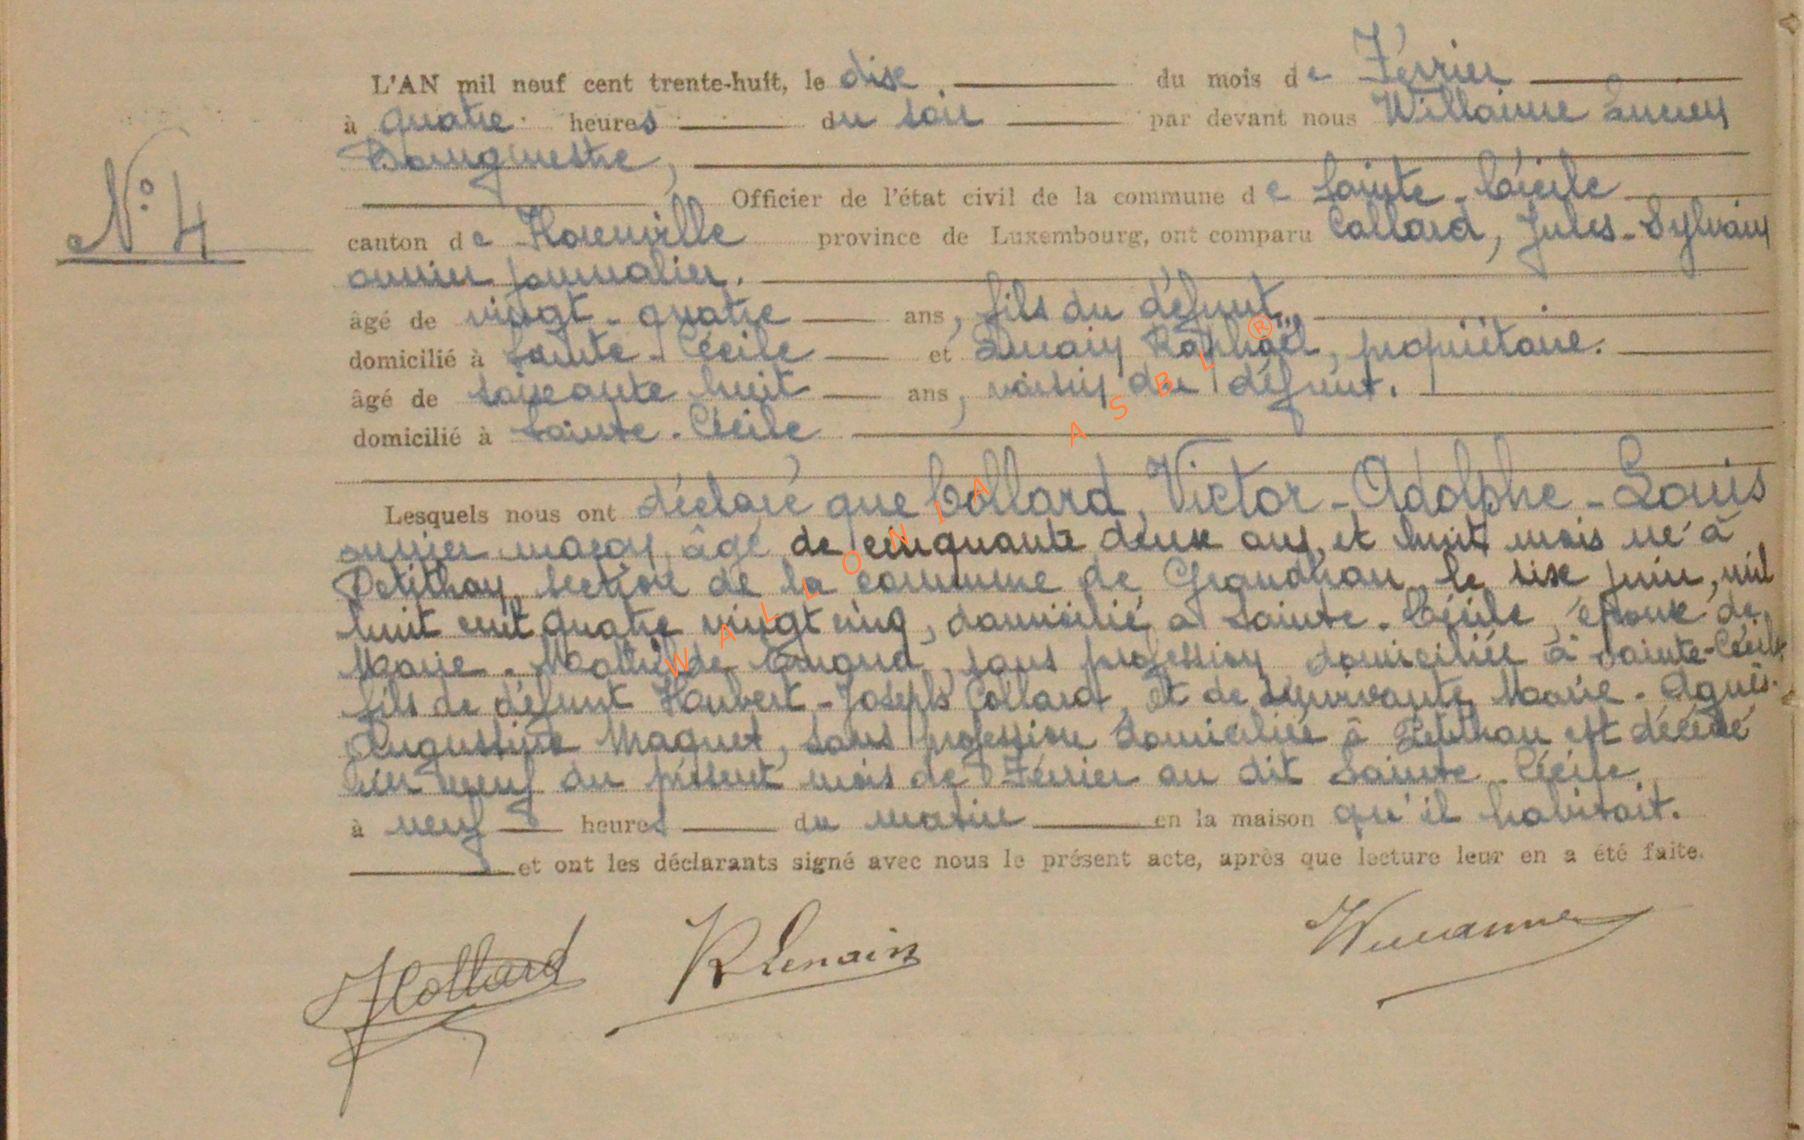 L'AN mil neuf cent trente-huit, le dix du mois de Février
à quatre heures du soir par devant nous Willaime Lucien
Bourgmestre,
N° 4
Officier de l'état civil de la commune de Sainte-Cécile
canton de Florenville province de Luxembourg, ont comparu Collard, Jules-Sylvain
ouvrier journalier.
âgé de vingt-quatre ans, fils du défunt,
domicilié à Sainte-Cécile et Lenain Raphaël, propriétaire.
âgé de soixante huit ans, voisin du défunt.
domicilié à Sainte-Cécile
Lesquels nous ont déclaré que Collard, Victor-Adolphe-Louis
ouvrier maçon, âgé de cinquante deux ans, et huit mois né à
Petithan, section de la commune de Grandhan, le six juin, mil
huit cent quatre vingt cinq, domicilié à Sainte-Cécile, époux de
Marie-Mathilde sans profession domiciliée à Sainte-Cécile
fils de défunt Hubert-Joseph Collard, et de survivante Marie-Agnès-
Augustine Maquet, sans profession domiciliée à Petithan est décédé
hier neuf du présent mois de Février au dit Sainte-Cécile
à neuf heures du matin en la maison qu'il habitait.
et ont les déclarants signé avec nous le présent acte, après que lecture leur en a été faite.
JCollard R Lenain Willaime
WALLONIA ASBL ®